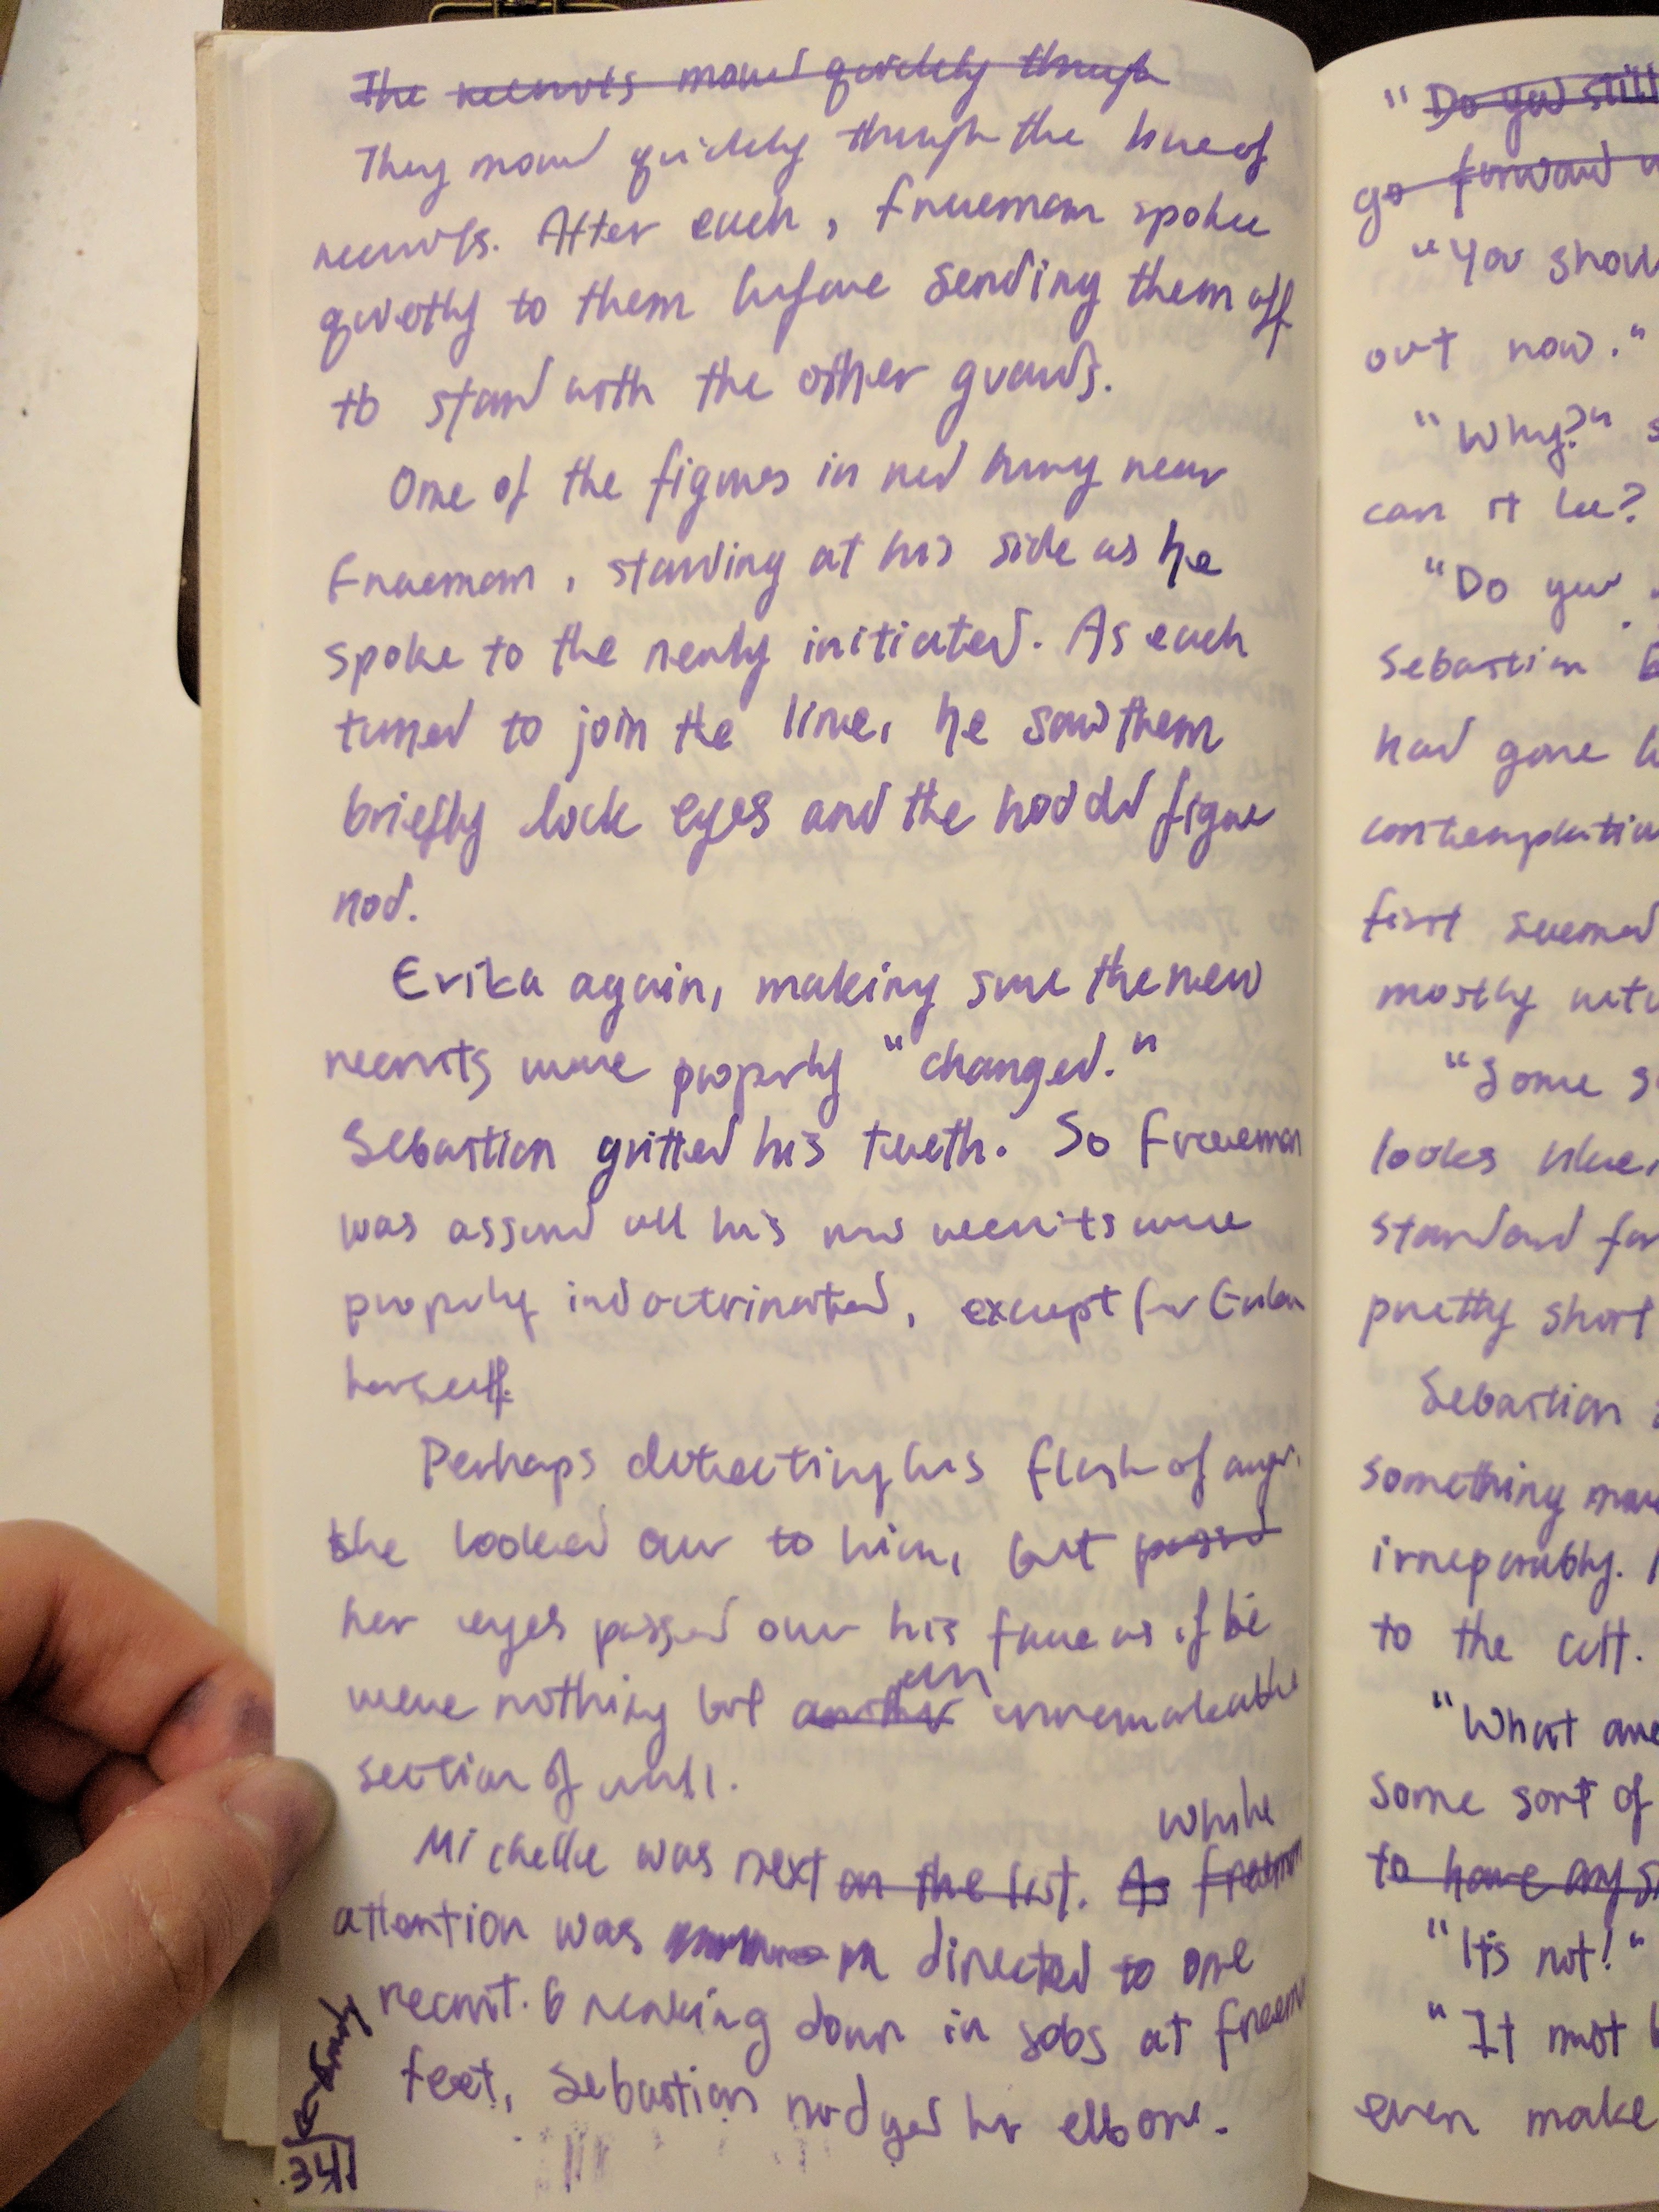 The recruits moved quickly through
They moved quickly through the line of
recruits. After each, Freeman spoke
quietly to them before sending them off
to stand with the other guards.
One of the figures in red hung near
Freeman, standing at his side as he
spoke to the newly initiated. As each
turned to join the line, he saw them
briefly lock eyes and the hooded figure
nod.
Erika again, making sure the new
recruits were properly "changed."
Sebastian gritted his teeth. So Freeman
was assured all his new recruits were
properly indoctrinated, except for Erika
herself.
Perhaps detecting his flash of anger,
she looked over to him, but passed
her eyes passed over his face as if he
were nothing but another an unremarkable
section of wall.
Michelle was next on the list. As Freeman
while
attention was directed to one
recruit breaking down in sobs at Freeman
feet, Sebastian nudged her elbow.
34
"Do you still
go forward
"You shoul
out now."
"Why?" s
can it be?
"Do you
Sebastian
had gone
contemplatiu
first seemed
mostly
"Some s
looks like,
standard for
pretty short
Sebastian
something
irreparably.
to the cult.
"What are
some sort of
to have any
"It's not!"
"It must
even make